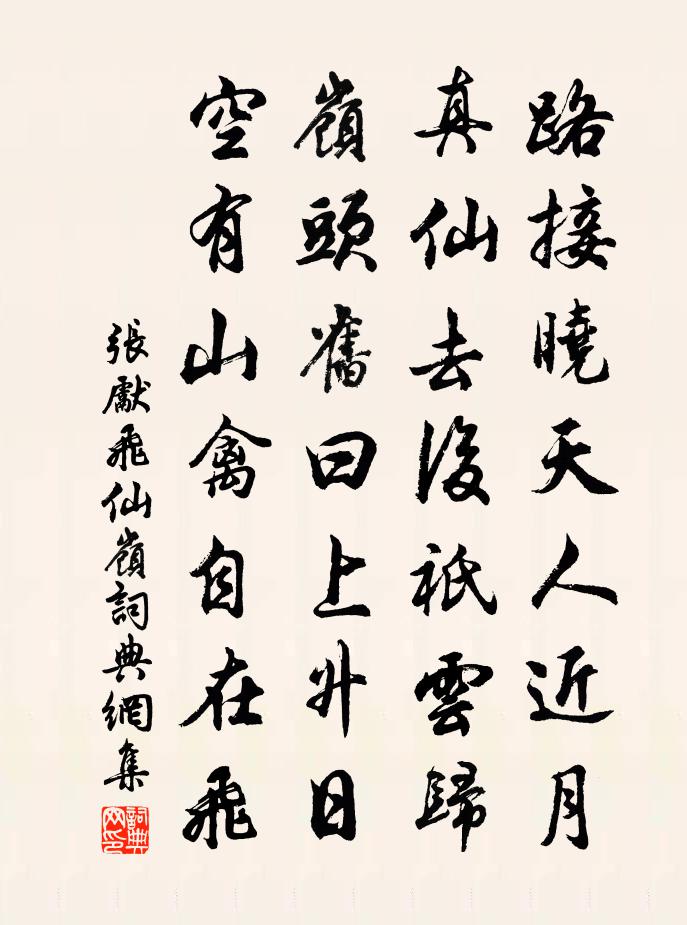 路接曉天人近月
真仙去後祇雲歸
嶺頭舊曰上升日
空有山禽自在飛
張獻飛仙嶺詞典網集
詞典網印